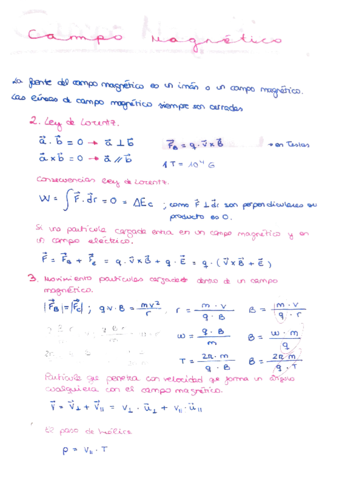 Campo Magnético
La fuente del campo magnético es un imán o un campo magnético.
Las líneas de campo magnético siempre son cerradas
2. Ley de Lorentz.
a⃗ · b⃗ = 0 → a⃗ ⊥ b⃗    F⃗_B = q · v⃗ x B⃗ → en Teslas
a⃗ x b⃗ = 0 → a⃗ // b⃗    1 T = 10⁻⁴ G
Consecuencias Ley de Lorentz.
W = ∫ F⃗ · d⃗r = 0 = ΔE_c ; como F⃗ ⊥ d⃗r son perpendiculares su
producto es 0.
Si una partícula cargada entra en un campo magnético y en
un campo eléctrico:
F⃗ = F⃗_B + F⃗_e = q · v⃗ x B⃗ + q · E⃗ = q · (v⃗ x B⃗ + E⃗)
3. Movimiento partículas cargadas dentro de un campo
magnético.
|F⃗_B| = |F⃗_c| ; q v · B = mv²/r    r = m · v / q · B    B = m · v / q · r
w = q · B / m    B = w · m / q
T = 2π · m / q · B    B = 2π · m / q · T
Partícula que penetra con velocidad que forma un ángulo
cualquiera con el campo magnético.
v⃗ = v⃗_⊥ + v⃗_∥ = v_⊥ · u⃗_⊥ + v_∥ · u⃗_∥
El paso de hélice
p = v_∥ · T